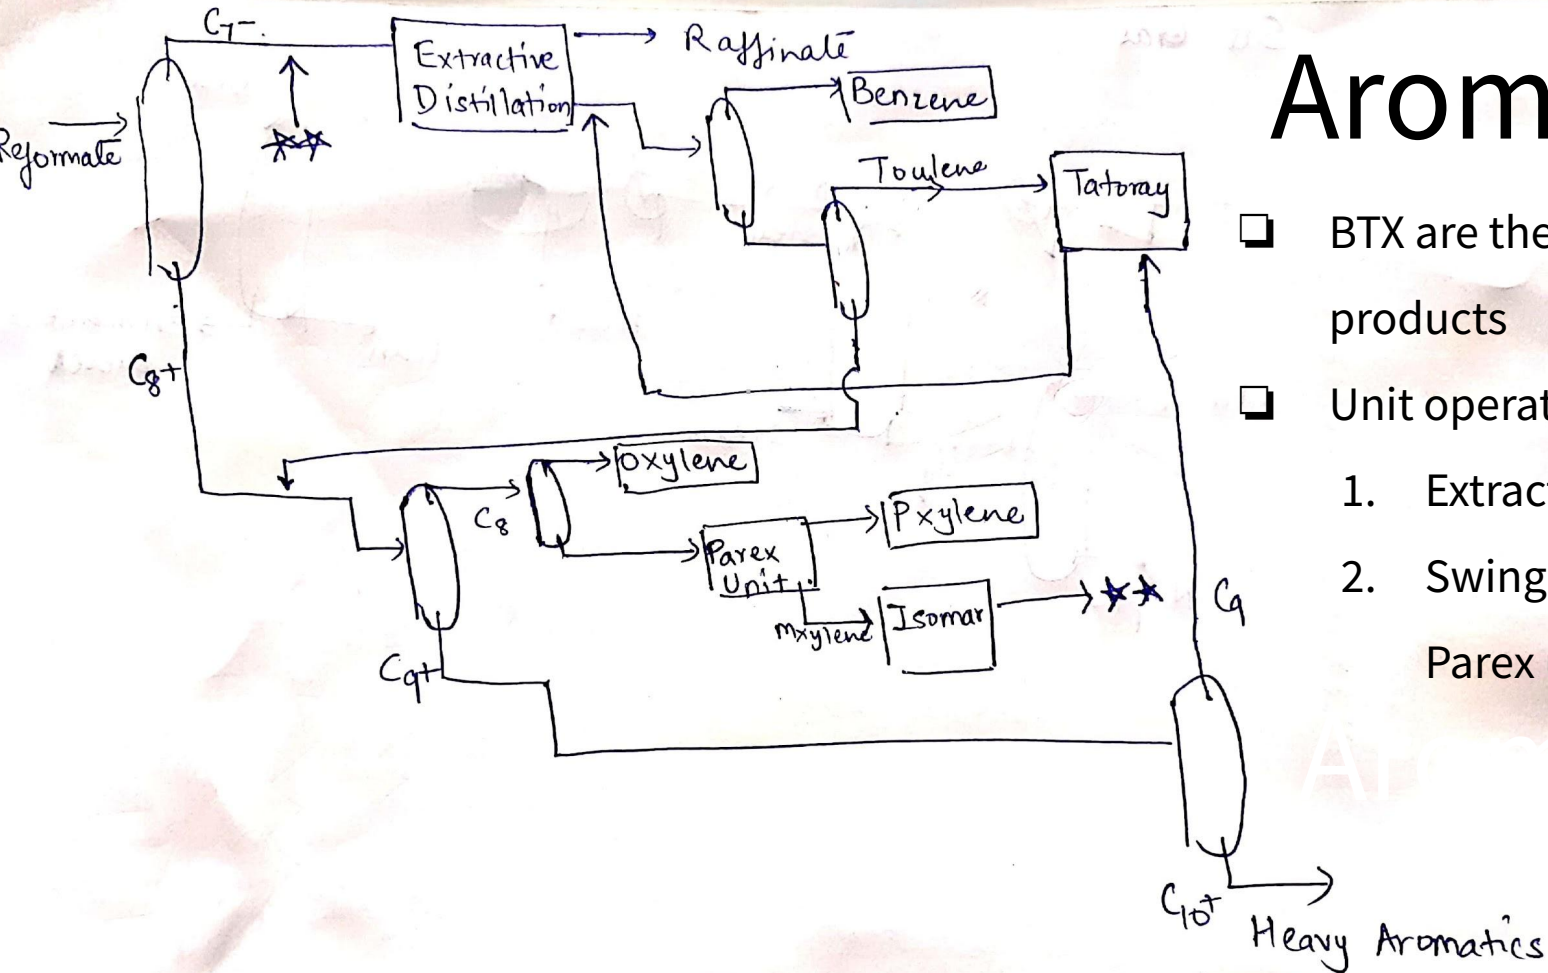 C7-
Extractive
Distillation
Raffinate
Reformate
Benzene
Toulene
Tatoray
C8+
Oxylene
C8
Parex
Unit
Pxylene
mxylene
Isomar
C9+
C9
C10+
Heavy Aromatics
Arom
BTX are the
products
Unit operat
1. Extract
2. Swing
Parex
Ar